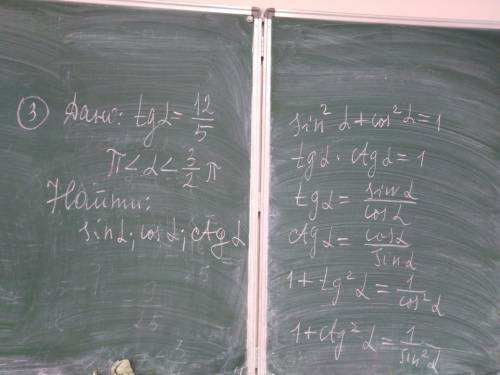 ③ Дано: tgα = 12/5
π < α < 3/2 π
Найти:
sinα; cosα; ctgα
sin² α + cos² α = 1
tgα · ctgα = 1
tgα = sinα/cosα
ctgα = cosα/sinα
1 + tg²α = 1/cos²α
1 + ctg²α = 1/sin²α